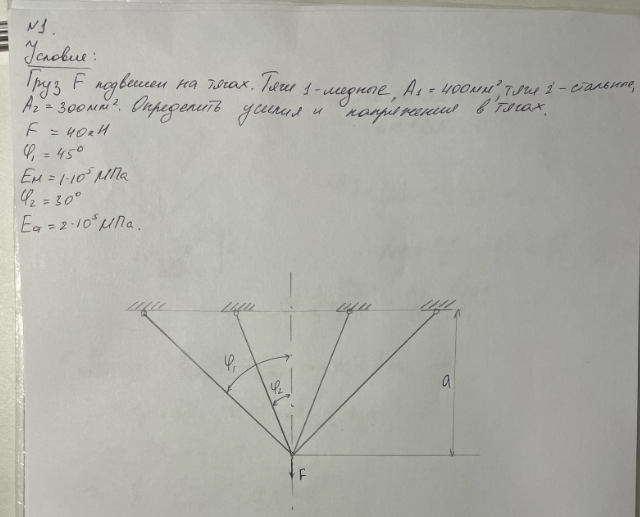 №1.
Условие:
Груз F подвешен на тягах. Тяги 1-медные, A₁ = 400мм², тяги 2-стальные,
A₂ = 300мм². Определить усилия и напряжения в тягах.
F = 40кН
φ₁ = 45°
Eм = 1·10⁵ МПа
φ₂ = 30°
Eст = 2·10⁵ МПа.
φ₁
φ₂
a
F